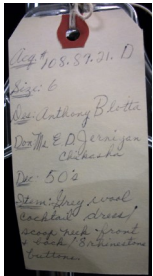 Acq. # 108.89.21. D
Size: 6
Des: Anthony Blotta
Don: Mrs. E. D. Jernigan
Chickasha
Dec: 50's
Item: Grey wool
cocktail dress,
scoop neck - front
& back, 8 rhinestone
buttons.